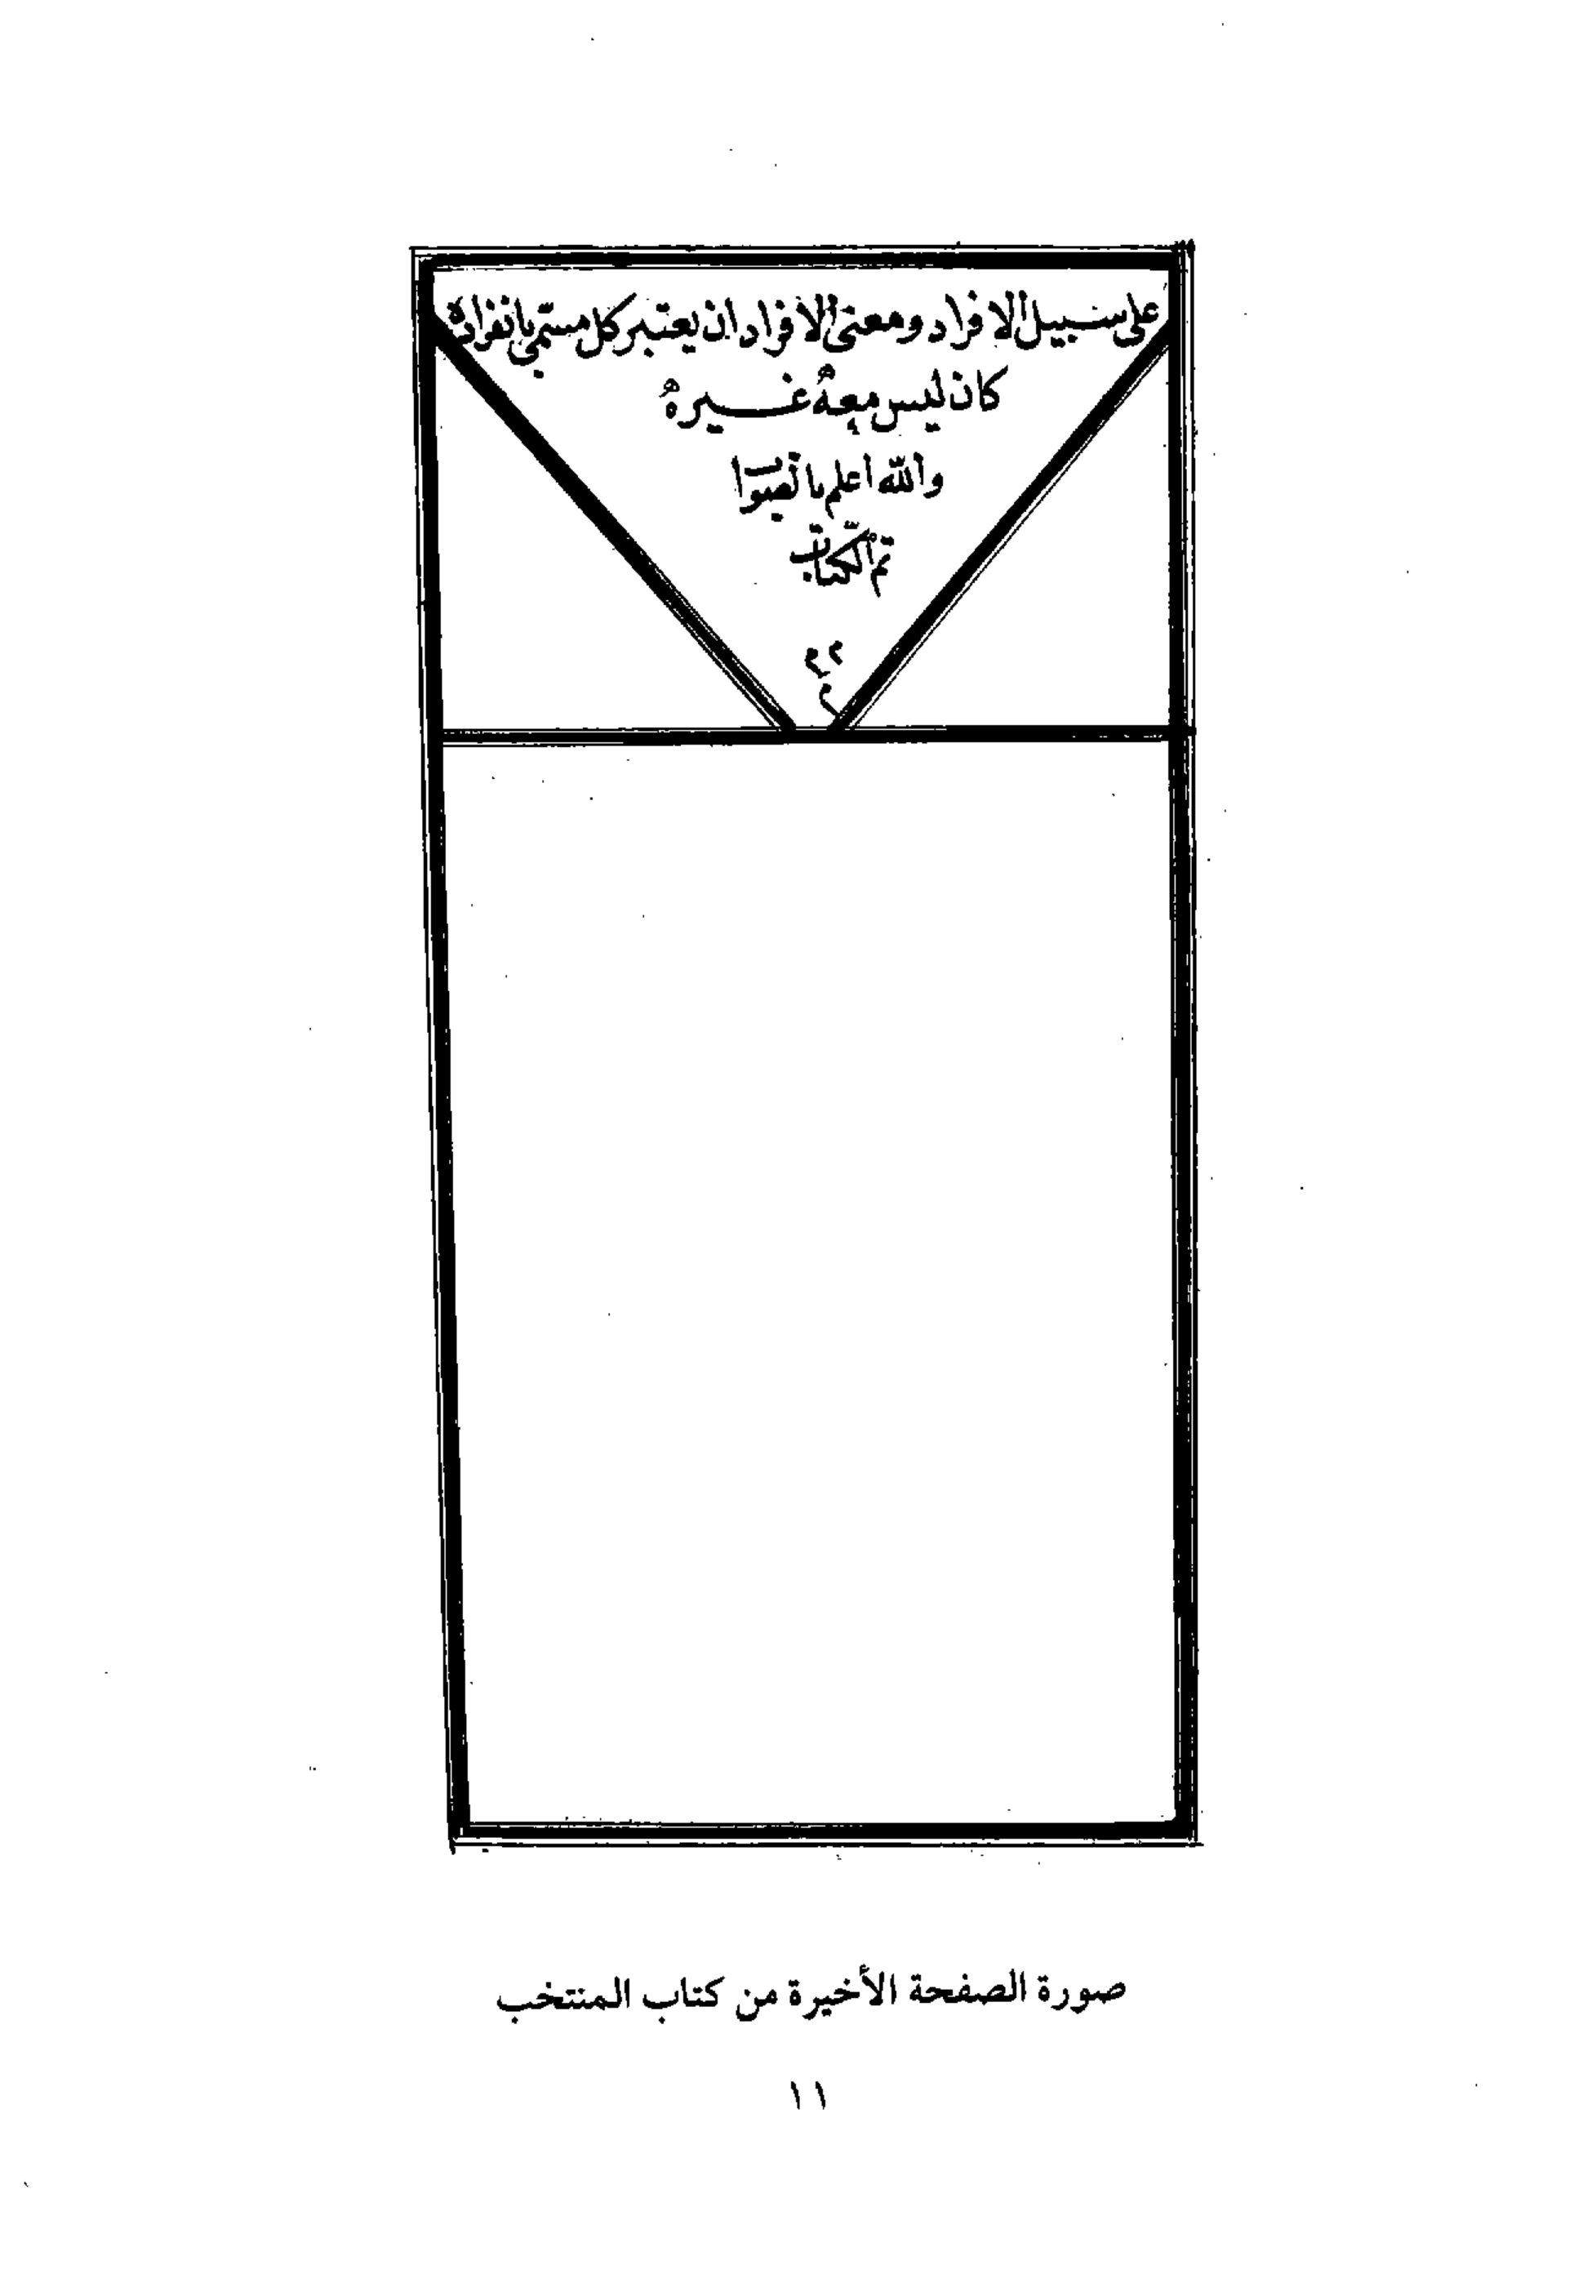 على سبيل الافراد ومعنى الافراد ان يعتبر كل مسمّى بانفراده
كان ليس معهُ غيرهُ
والله اعلم بالصواب
تم الكتاب
م م
م
صورة الصفحة الأخيرة من كتاب المنتخب
١١